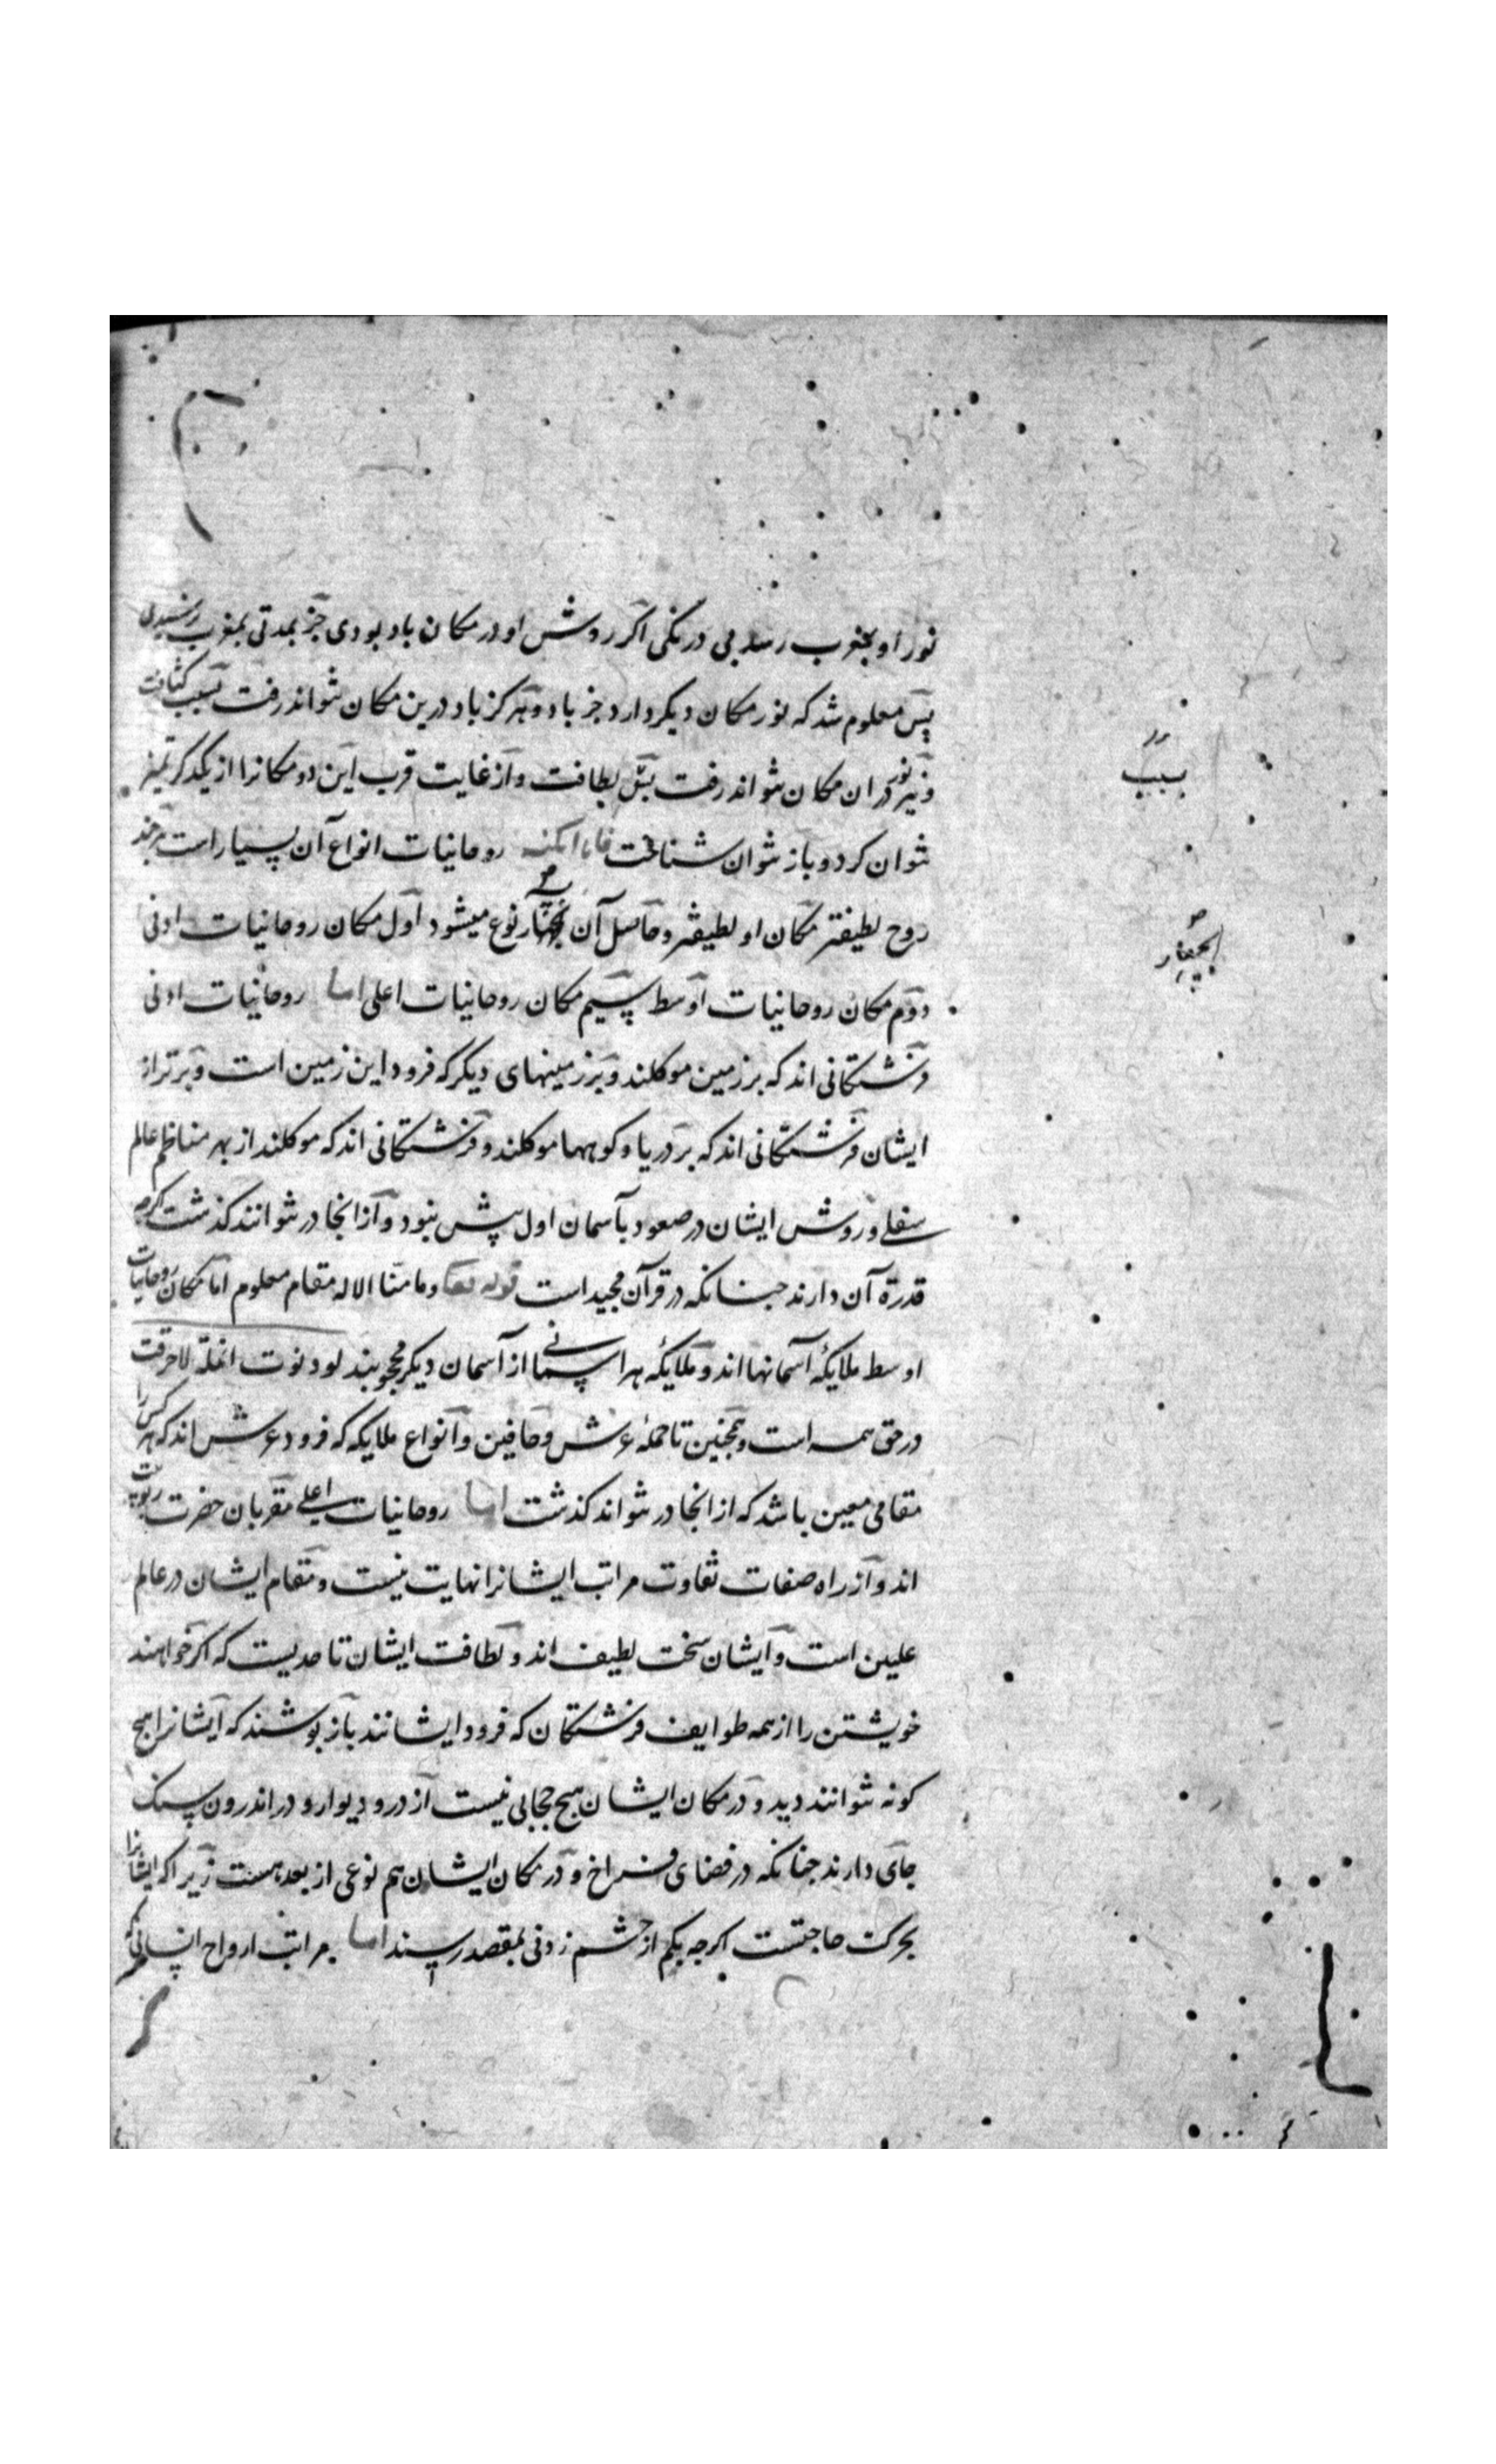 نور او بمغرب رسد بی درنکی اکر روش او در مکان باد بودی جز بمدتی بمغرب نرسیدی
پس معلوم شد که نور مکان دیکر دارد جز باد و هرکز باد درین مکان نتواند رفت بسبب کثافت
و نیز نور در ان مکان نتواند رفت بسبب لطافت و از غایت قرب این دو مکانرا از یکدکر تمیز
نتوان کرد و باز نتوان شناخت فاما امکنه روحانیات انواع آن بسیار است هرچند
روح لطیفتر مکان او لطیفتر و حاصل آن بچهار نوع میشود اول مکان روحانیات ادنی
دوم مکان روحانیات اوسط سیم مکان روحانیات اعلی اما روحانیات ادنی
فرشتکانی اند که بر زمین موکلند و بر زمینهای دیکر که فرود این زمین است و برتر از
ایشان فرشتکانی اند که بر دریا و کوهها موکلند و فرشتکانی اند که موکلند از بهر مناظم عالم
سفلی و روش ایشان در صعود بآسمان اول بیش نبود و از انجا در نتوانند کذشت اکرچه
قدرة آن دارند جنانکه در قرآن مجید است قوله تعا وما منا الا له مقام معلوم اما مکان روحانیات
اوسط ملایکه آسمانها اند و ملایکه هر اسمانی از آسمان دیکر محجوبند لو دنوت انملة لاحرقت
در حق همه است و همچنین تا حمله عرش و حافین و انواع ملایکه که فرود عرش اند که هر کس را
مقامی معین باشد که از انجا در نتواند کذشت اما روحانیات اعلی مقربان حضرت ربوبیت
اند و از راه صفات تفاوت مراتب ایشانرا نهایت نیست و مقام ایشان در عالم
علیین است و ایشان سخت لطیف اند و لطافت ایشان تا حدیست که اکر خواهند
خویشتن را از همه طوایف فرشتکان که فرود ایشانند باز پوشند که ایشانرا هیج
کونه نتوانند دید و در مکان ایشان هیج حجابی نیست از در و دیوار و در اندرون سنک
جای دارند جنانکه در فضای فراخ و در مکان ایشان هم نوعی از بعد هست زیرا که ایشانرا
بحرکت حاجتست اکرجه بکم از جشم زدنی بمقصد رسند اما مراتب ارواح انسانی که
بسبب
بچهار